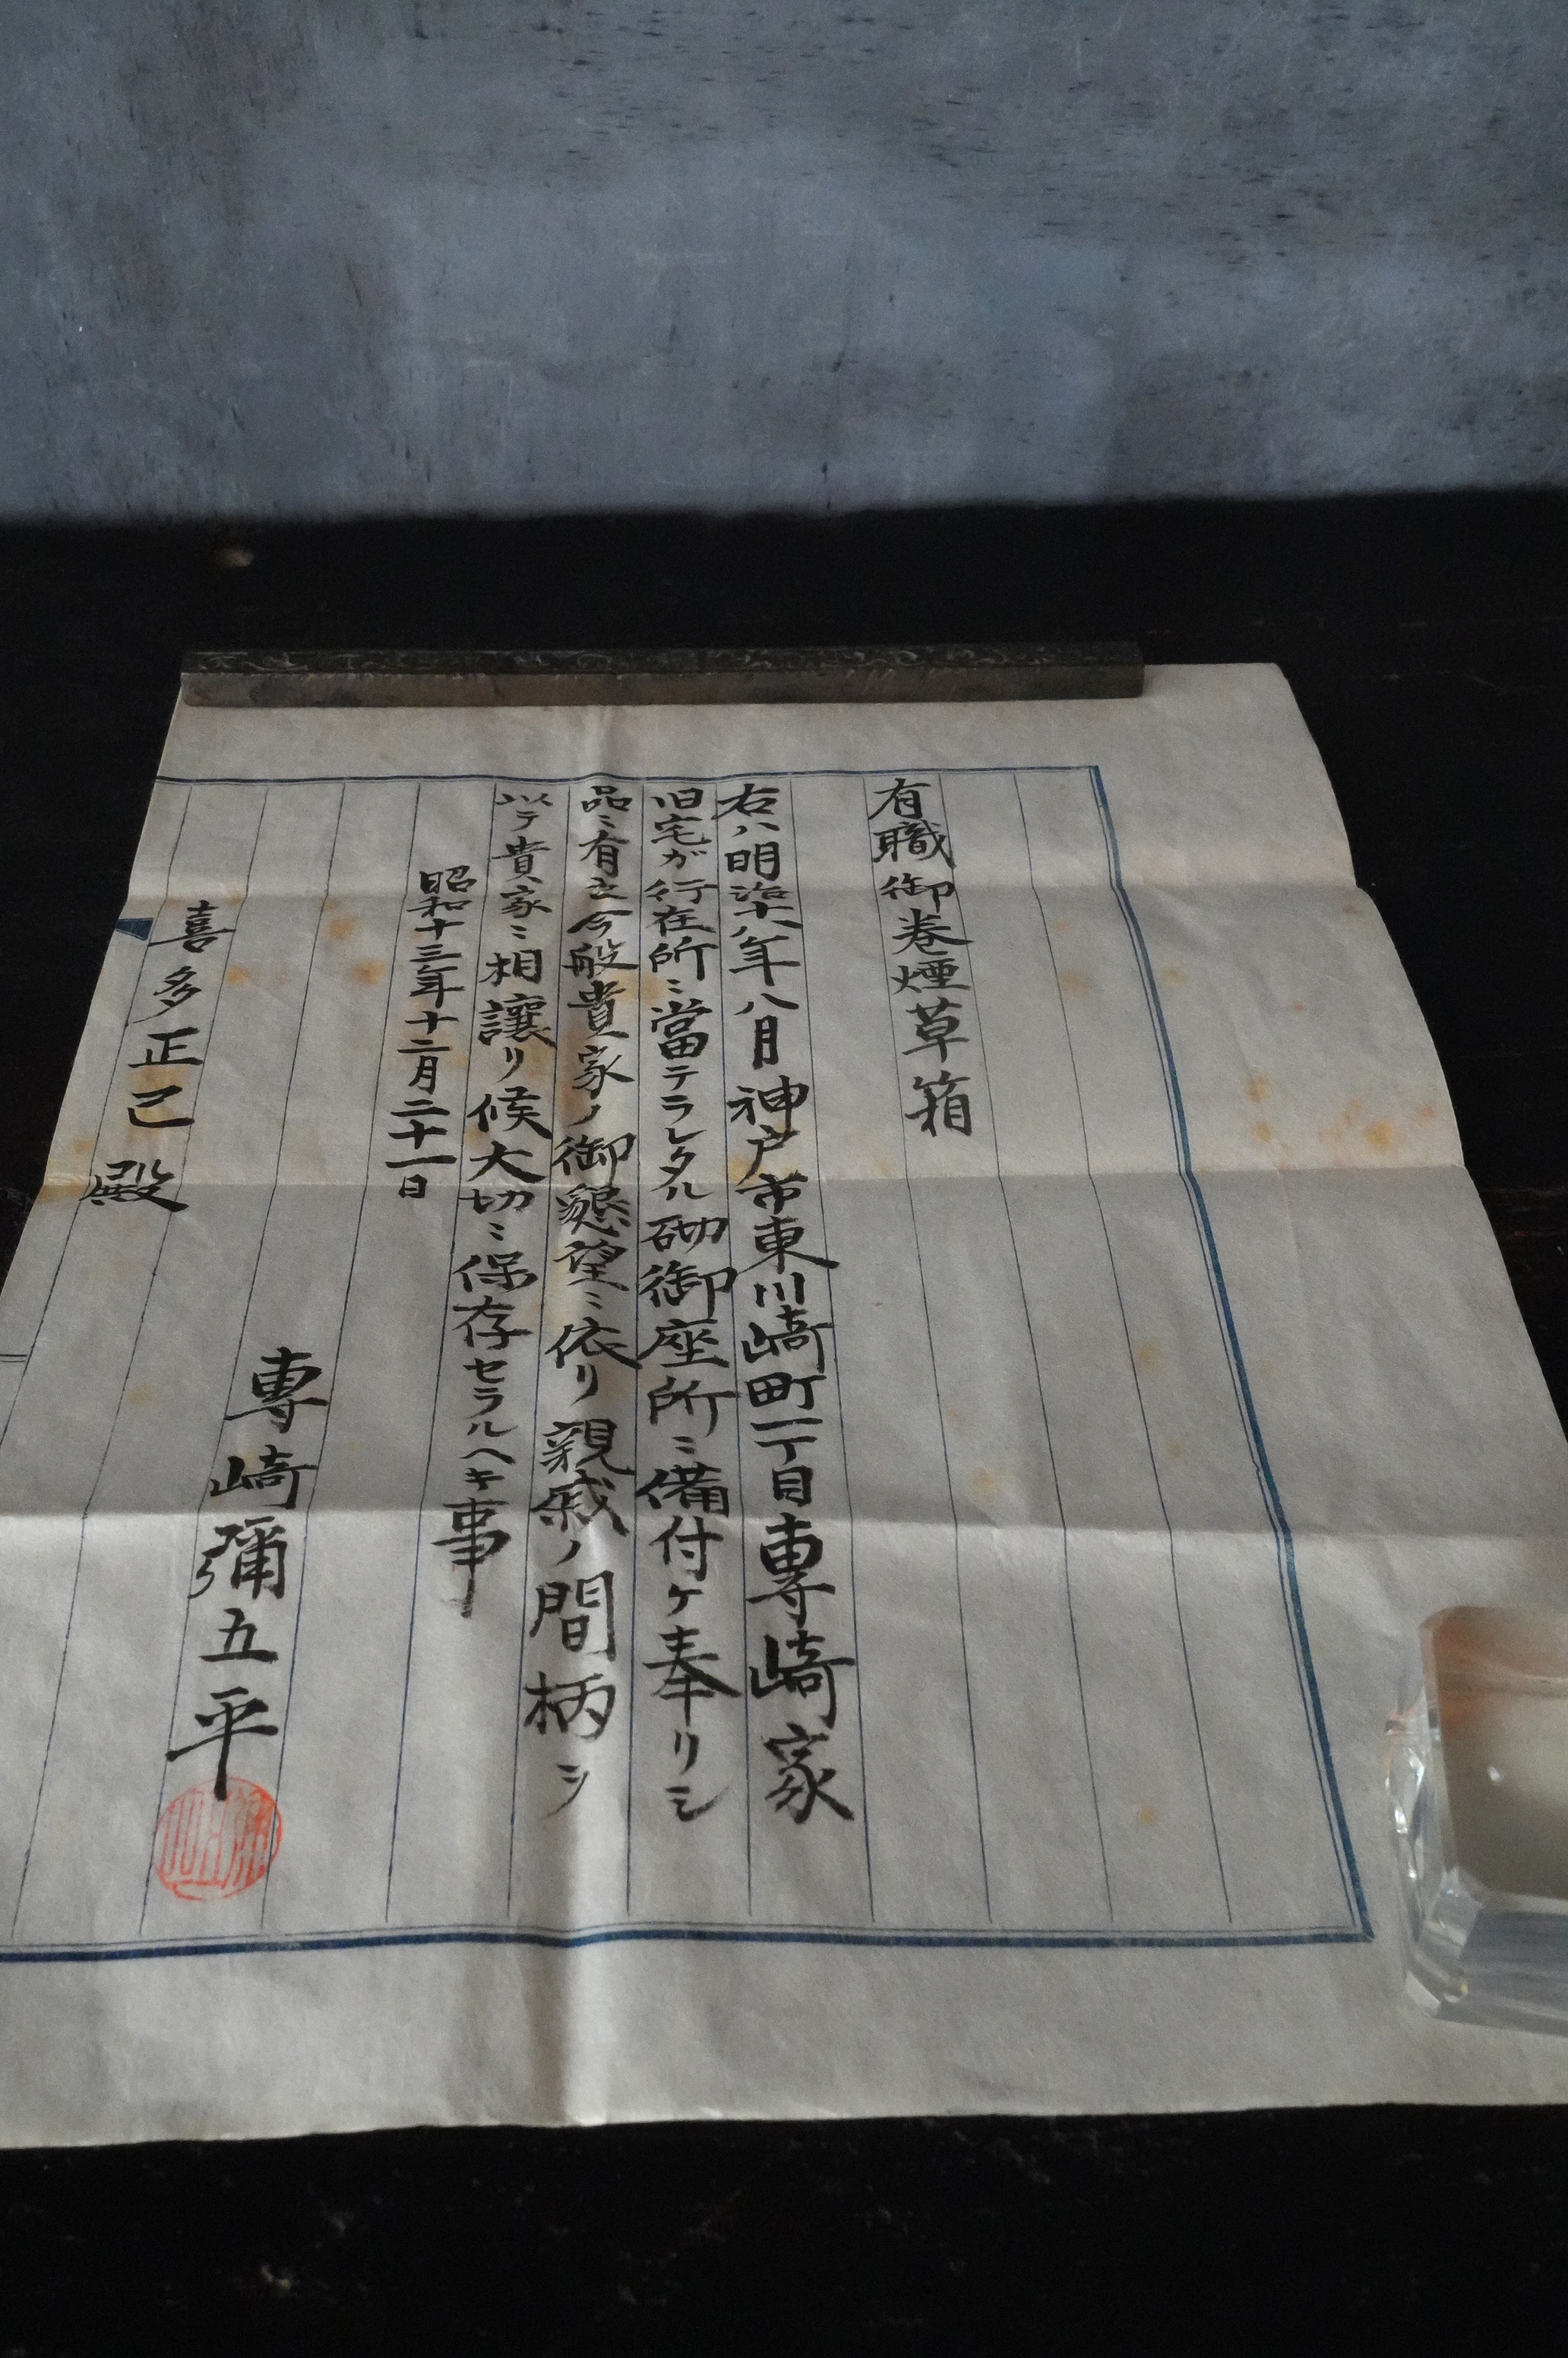 有職御巻煙草箱
右ハ明治十八年八月神戸市東川崎町一丁目専崎家
旧宅ガ行在所ニ當テラレタル砌御座所ニ備付ケ奉リシ
品ニ有之今般貴家ノ御懇望ニ依リ親戚ノ間柄ヲ
以テ貴家ニ相譲リ候大切ニ保存セラルヘキ事
昭和十三年十二月二十一日
専崎彌五平
喜多正己殿